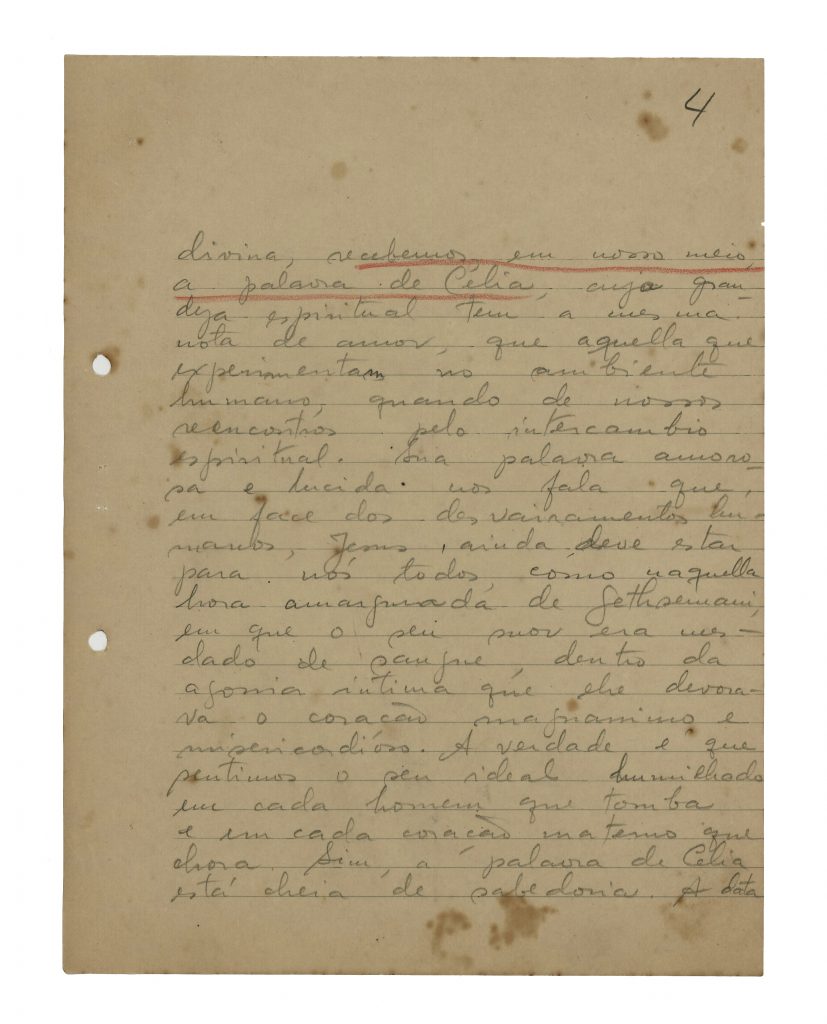 4
divina, recebemos, em nosso meio,
a palavra de Célia, cuja gran-
deza espiritual tem a mesma
nota de amor, que aquella que
experimentam no ambiente
humano, quando de nossos
reencontros pelo intercambio
espiritual. Sua palavra amoro-
sa e lucida nos fala que,
em face dos desvairamentos hu-
manos, Jesus, ainda deve estar
para nós todos, como naquella
hora amargurada de Gethsemani,
em que o seu suor era
dado de sangue, dentro da
agonia íntima que lhe devora-
va o coração magnanimo e
misericordióso. A verdade e que
sentimos o seu ideal humilhado
em cada homem que tomba
e em cada coração materno que
chora. Sim, a palavra de Celia
está cheia de sabedoria. A data